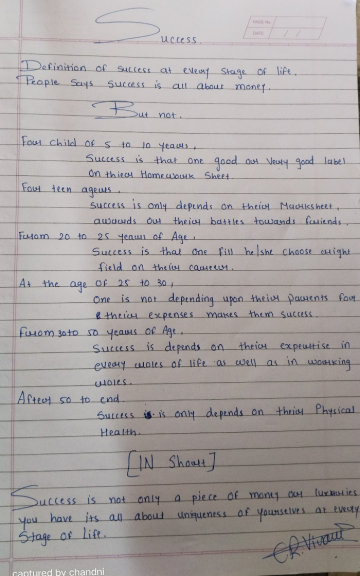 Success.
PAGE NO.
DATE
Definition of success at every stage of life.
People says success is all about money.
But not.
Four child of 5 to 10 years,
Success is that one good or Very good label
On their Homework Sheet.
Four teen agers.
Success is only depends on their Marksheet,
awards or their battles towards friends.
From 20 to 25 years of Age,
Success is that one fill he/she choose wright
field on their careers.
At the age of 25 to 30,
One is not depending upon their parents for
their expenses makes them success.
From 30to 50 years of Age,
Success is depends on their expertise in
every wroles of life as well as in working
wroles.
After 50 to end
Success is is only depends on their Physical
Health.
[IN Short]
Success is not only a piece of money or luxuries
you have its all about uniqueness of yourselves at every
Stage of life.
captured by chandni